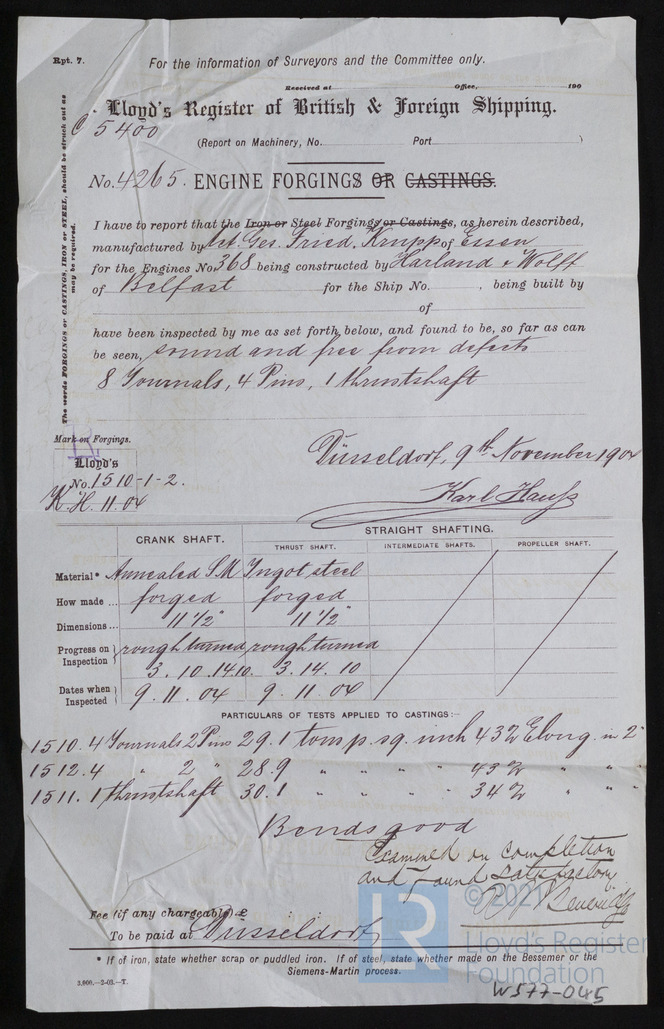 Rpt. 7.
For the information of Surveyors and the Committee only.
Received at Office, 190
Lloyd's Register of British & Foreign Shipping.
C 5400
(Report on Machinery, No. Port )
No. 4265. ENGINE FORGINGS OR CASTINGS.
The words FORGINGS or CASTINGS, IRON or STEEL, should be struck out as may be required.
I have to report that the Iron or Steel Forgings or Castings, as herein described,
manufactured by Act. Ges. Fried. Krupp of Essen
for the Engines No. 368 being constructed by Harland & Wolff
of Belfast for the Ship No. , being built by
of
have been inspected by me as set forth below, and found to be, so far as can
be seen, sound and free from defects
8 Journals, 4 Pins, 1 thrustshaft
Mark on Forgings.
Lloyd's
No. 1510-1-2.
K.H. 11.04
Düsseldorf, 9th November 1904
Karl Hauß
CRANK SHAFT. STRAIGHT SHAFTING.
THRUST SHAFT. INTERMEDIATE SHAFTS. PROPELLER SHAFT.
Material* Annealed S.M Ingot steel
How made ... forged forged
Dimensions ... 11 1/2" 11 1/2"
Progress on Inspection rough turned rough turned
3.10.14.10. 3.14.10
Dates when Inspected 9.11.04 9.11.04
PARTICULARS OF TESTS APPLIED TO CASTINGS:—
1510. 4 Journals 2 Pins 29.1 tons p. sq. inch 43% Elong. in 2"
1512. 4 " 2 " 28.9 " " " " 43% " " "
1511. 1 thrustshaft 30.1 " " " " 34% " " "
Bends good
Examined on completion
and found satisfactory.
Fee (if any chargeable) £ : :
To be paid at Düsseldorf
* If of iron, state whether scrap or puddled iron. If of steel, state whether made on the Bessemer or the
Siemens-Martin process.
3,000.—3-03.—T.
© 2021
LR
Lloyd's Register
Foundation
W577-045